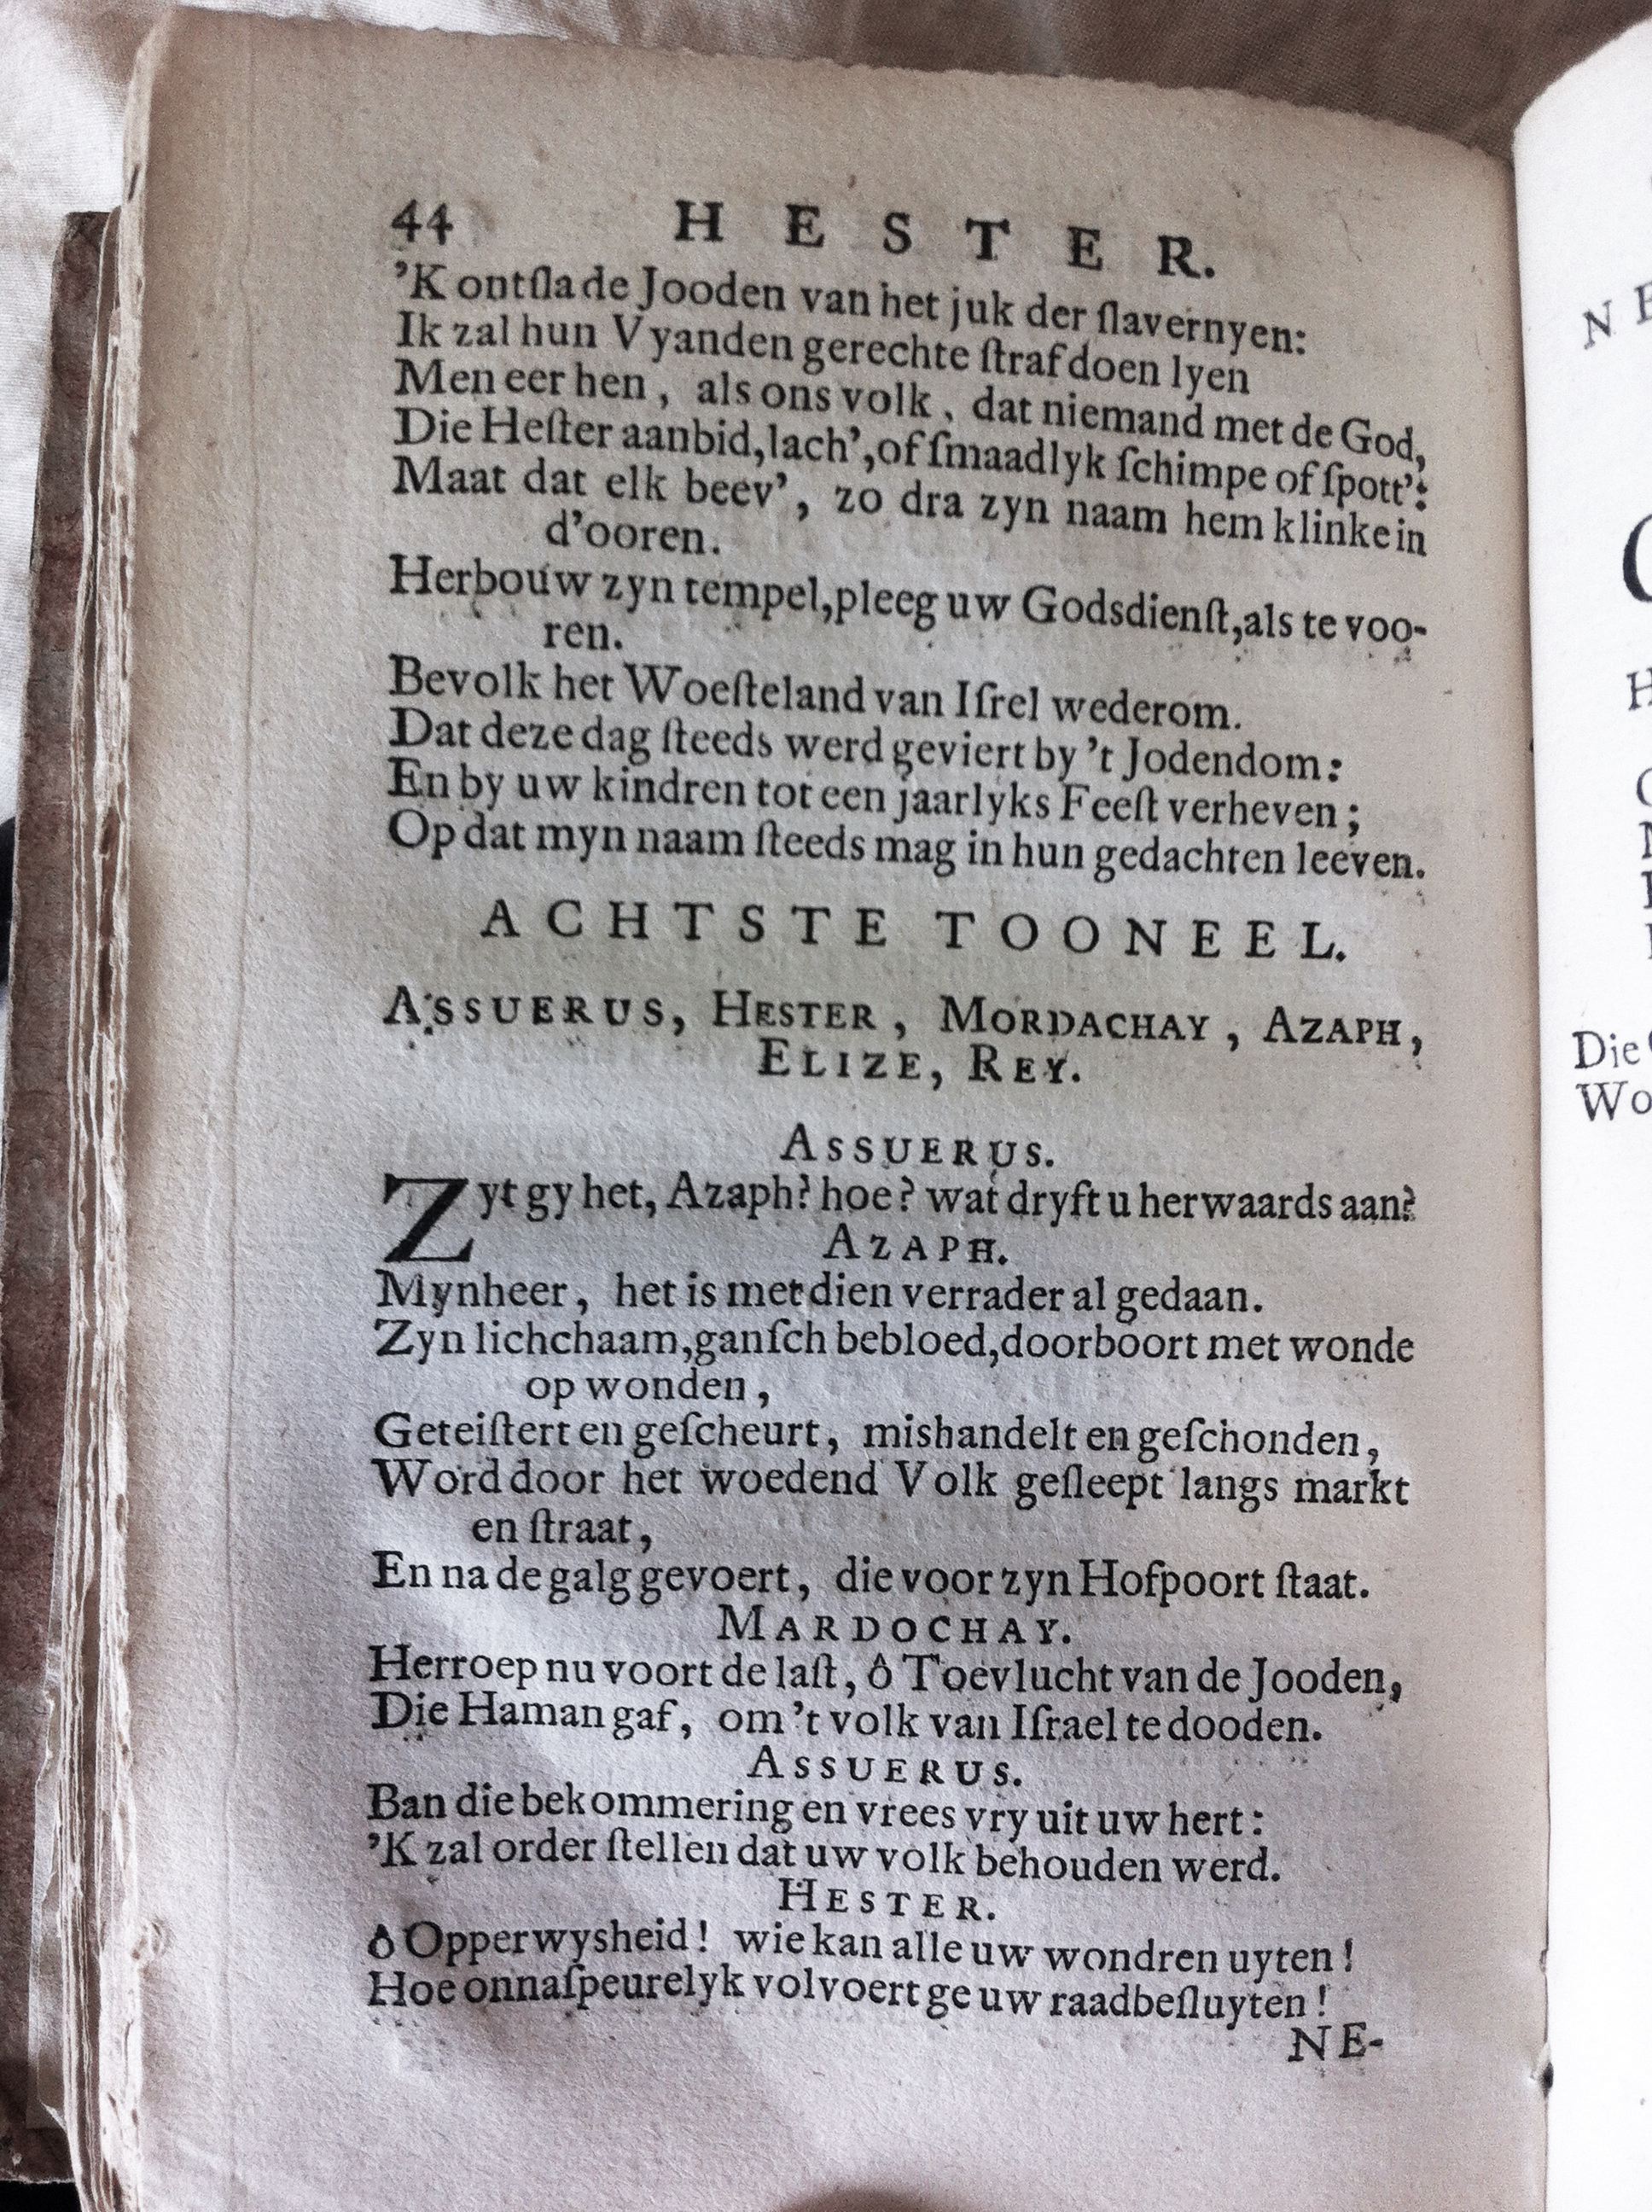 44 HESTER.
’K ontſla de Jooden van het juk der ſlavernyen:
Ik zal hun Vyanden gerechte ſtraf doen lyen
Men eer hen, als ons volk, dat niemand met de God,
Die Heſter aanbid, lach’, of ſmaadlyk ſchimpe of ſpott’:
Maat dat elk beev’, zo dra zyn naam hem klinke in
d’ooren.
Herbouw zyn tempel, pleeg uw Godsdienſt, als te voo-
ren.
Bevolk het Woeſteland van Iſrel wederom.
Dat deze dag ſteeds werd geviert by ’t Jodendom:
En by uw kindren tot een jaarlyks Feeſt verheven;
Op dat myn naam ſteeds mag in hun gedachten leeven.
ACHTSTE TOONEEL.
ASSUERUS, HESTER, MORDACHAY, AZAPH,
ELIZE, REY.
ASSUERUS.
Zyt gy het, Azaph? hoe? wat dryft u herwaards aan?
AZAPH.
Mynheer, het is met dien verrader al gedaan.
Zyn lichchaam, ganſch bebloed, doorboort met wonde
op wonden,
Geteiſtert en geſcheurt, mishandelt en geſchonden,
Word door het woedend Volk geſleept langs markt
en ſtraat,
En na de galg gevoert, die voor zyn Hofpoort ſtaat.
MARDOCHAY.
Herroep nu voort de laſt, ô Toevlucht van de Jooden,
Die Haman gaf, om ’t volk van Iſrael te dooden.
ASSUERUS.
Ban die bekommering en vrees vry uit uw hert:
’K zal order ſtellen dat uw volk behouden werd.
HESTER.
ô Opperwysheid! wie kan alle uw wondren uyten!
Hoe onnaſpeurelyk volvoert ge uw raadbeſluyten!
NE-
Die